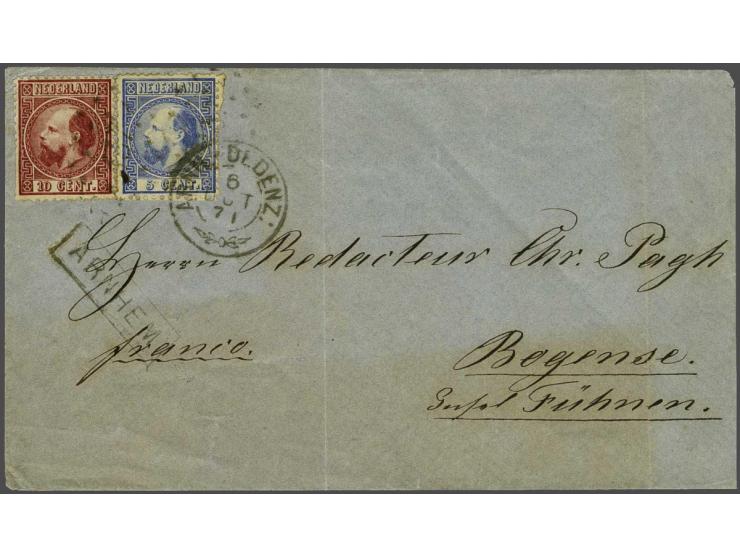 NEDERLAND NEDERLAND
10 CENT. 5 CENT.
OLDENZ:
6
OCT
71
ARNHEM
Herrn Redacteur Chr. Pagh
franco.
Bogense.
Insel Fühnen.